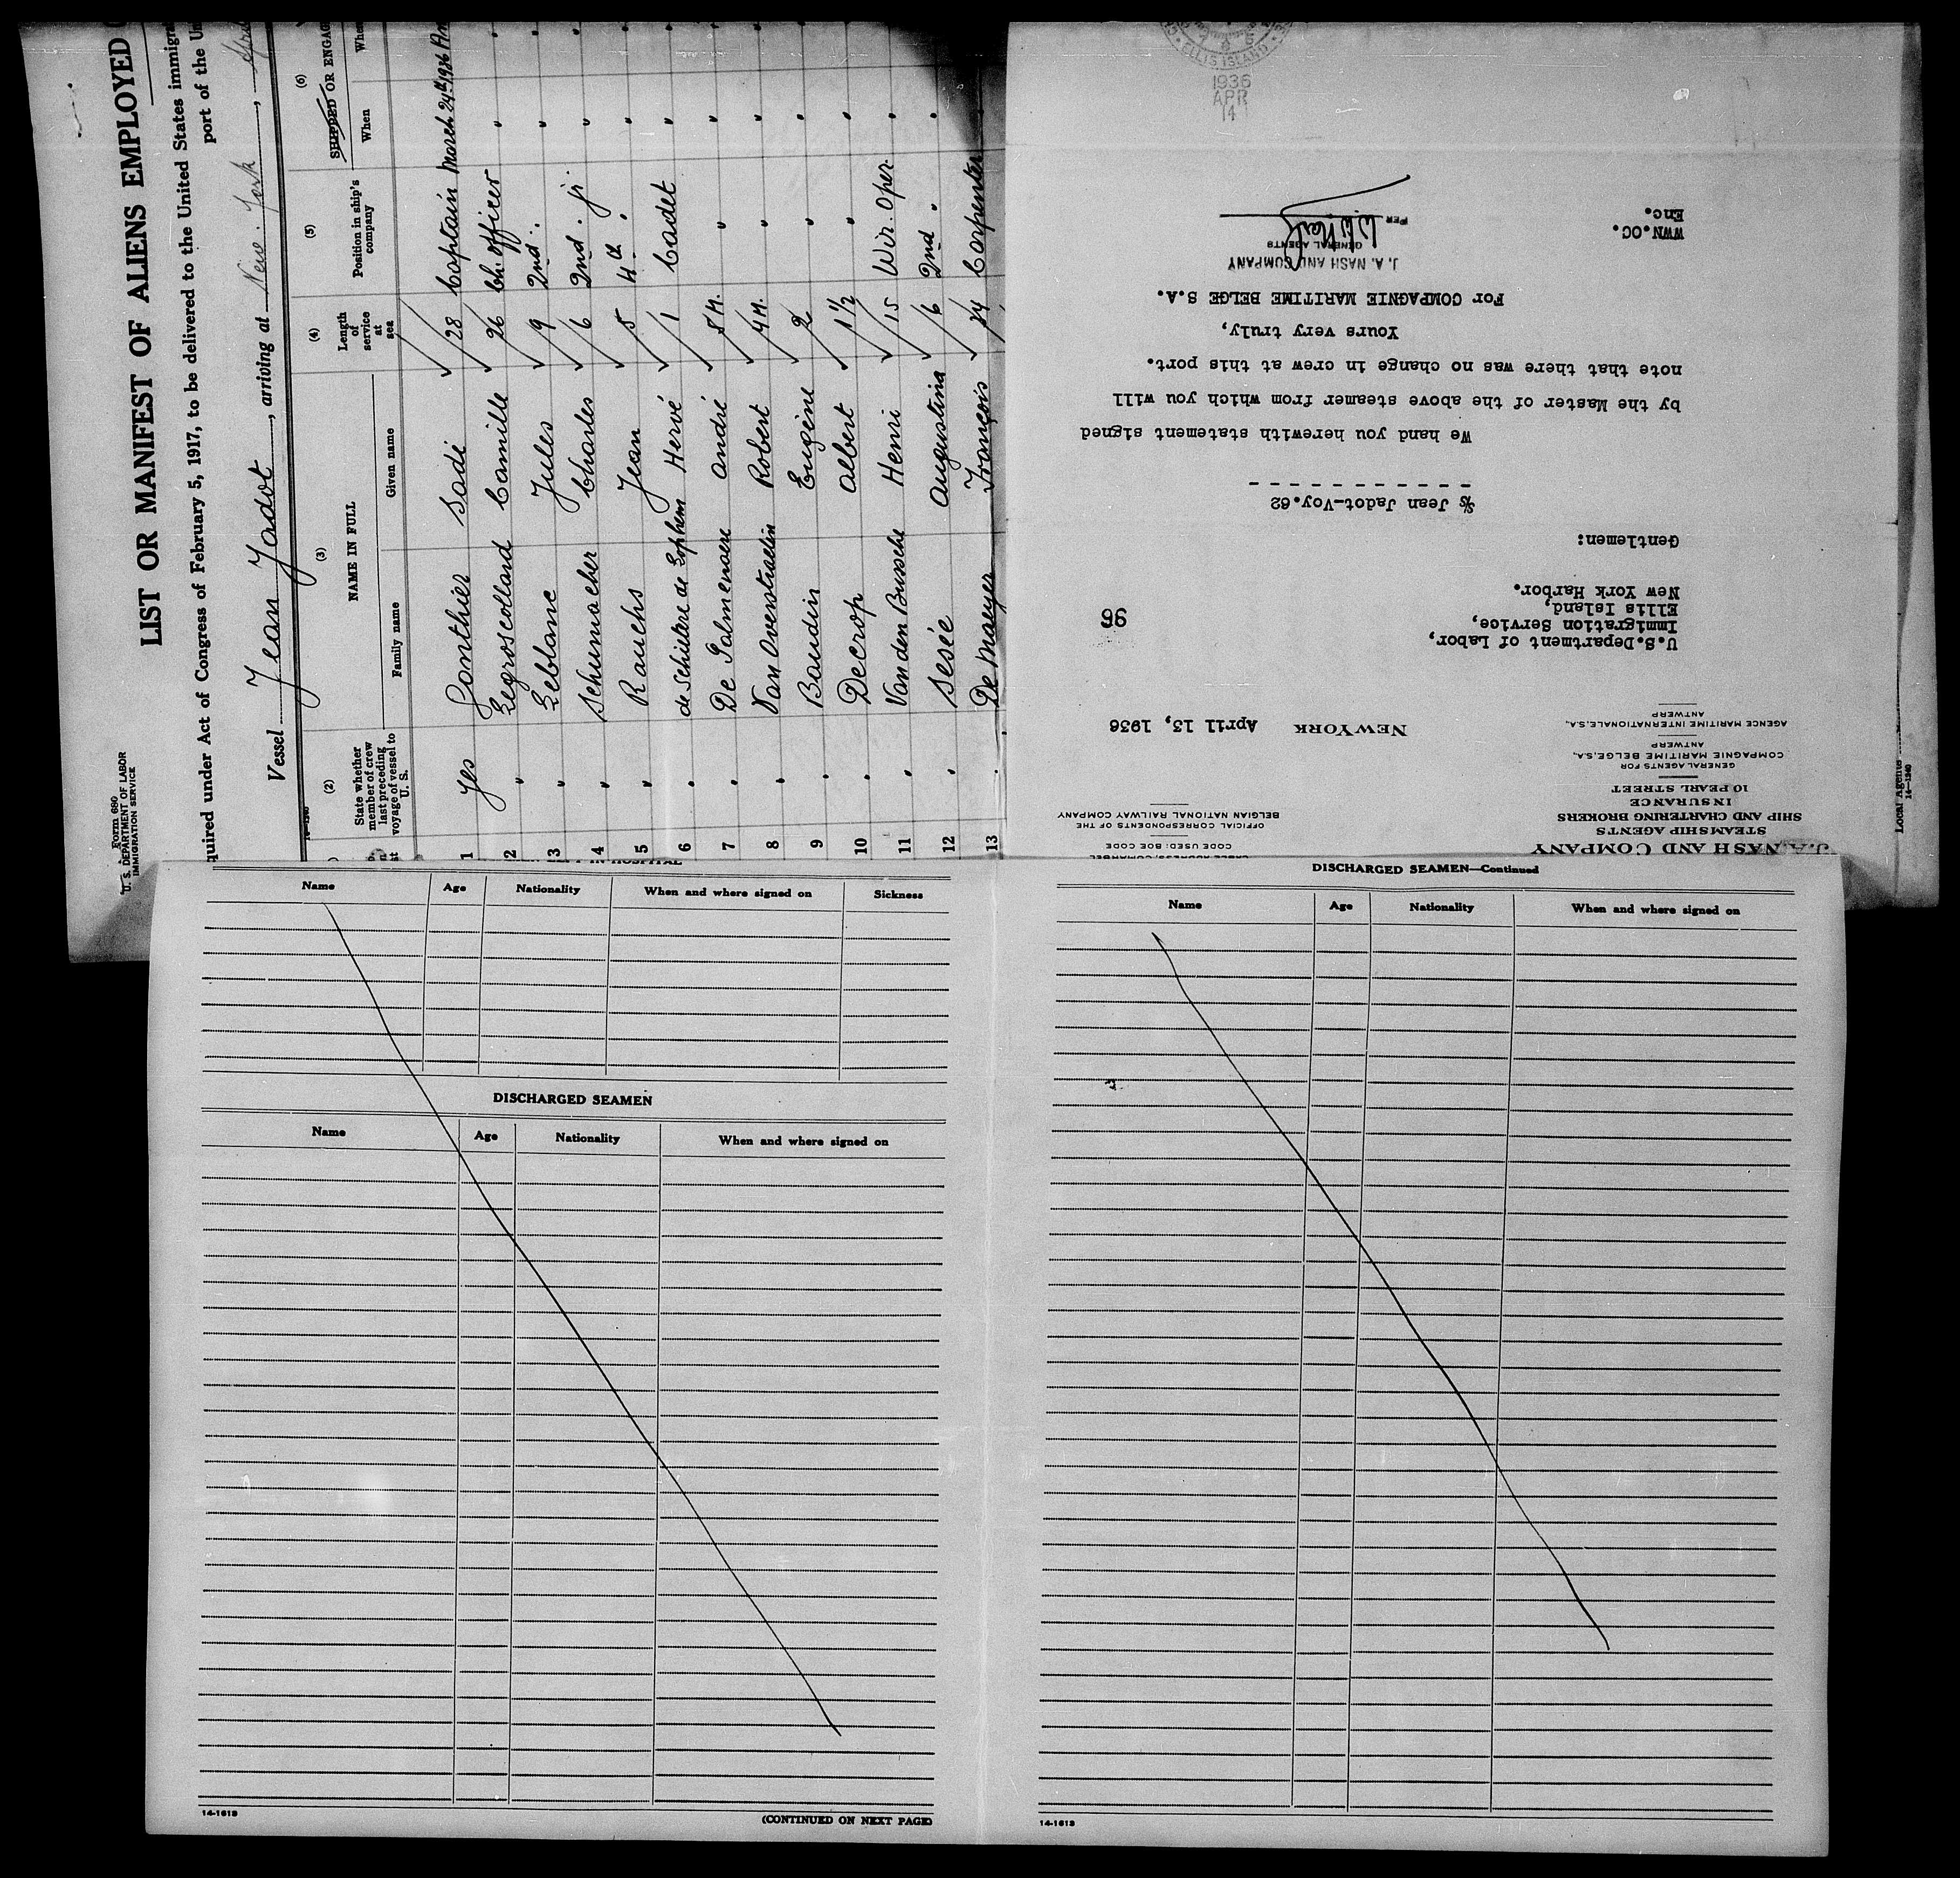 Form 680
U. S. DEPARTMENT OF LABOR
IMMIGRATION SERVICE
LIST OR MANIFEST OF ALIENS EMPLOYED
quired under Act of Congress of February 5, 1917, to be delivered to the United States immigra
port of the U
Vessel Jean Jadot, arriving at New-York,
(2) (3) (4) (5) (6)
State whether member of crew last preceding voyage of vessel to U. S.
NAME IN FULL
Family name Given name
Length of service at sea
Position in ship's company
SHIPPED OR ENGAG
When
1 yes Gonthier Sadi 28 Captain March 24th 1936
2 " Legroscollard Camille 26 Ch. officer "
3 " Leblanc Jules 9 2nd " "
4 " Schumacher Charles 6 2nd " jr "
5 " Rauchs Jean 5 4th " "
6 " Hervé 1 Cadet "
7 " André 8 M. " "
8 " Van Overstraelin Robert 4 M. " "
9 " Baudin Eugène 2 " "
10 " Decrop Albert 1 1/2 " "
11 " Van den Bussche Henri 15 Wir. Oper. "
12 " Sesée Augustina 6 2nd " "
13 " De Maeyer François 24 Carpenter
J. A. NASH AND COMPANY
STEAMSHIP AGENTS
SHIP AND CHARTERING BROKERS
INSURANCE
10 PEARL STREET
GENERAL AGENTS FOR
COMPAGNIE MARITIME BELGE, S.A.,
ANTWERP
AGENCE MARITIME INTERNATIONALE, S.A.,
ANTWERP
CODE USED: BOE CODE
OFFICIAL CORRESPONDENTS OF THE
BELGIAN NATIONAL RAILWAY COMPANY
NEW YORK April 13, 1936
U.S. Department of Labor,
Immigration Service,
Ellis Island,
New York Harbor.
96
Gentlemen:
S/S Jean Jadot-Voy.62
We hand you herewith statement signed
by the Master of the above steamer from which you will
note that there was no change in crew at this port.
Yours very truly,
For COMPAGNIE MARITIME BELGE S.A.
J. A. NASH AND COMPANY
GENERAL AGENTS
PER
WWN.OC.
Enc.
ELLIS ISLAND
1936
APR
14
Local Agents
14—1240
Name Age Nationality When and where signed on Sickness
DISCHARGED SEAMEN
Name Age Nationality When and where signed on
14-1613
(CONTINUED ON NEXT PAGE)
DISCHARGED SEAMEN—Continued
Name Age Nationality When and where signed on
14-1613